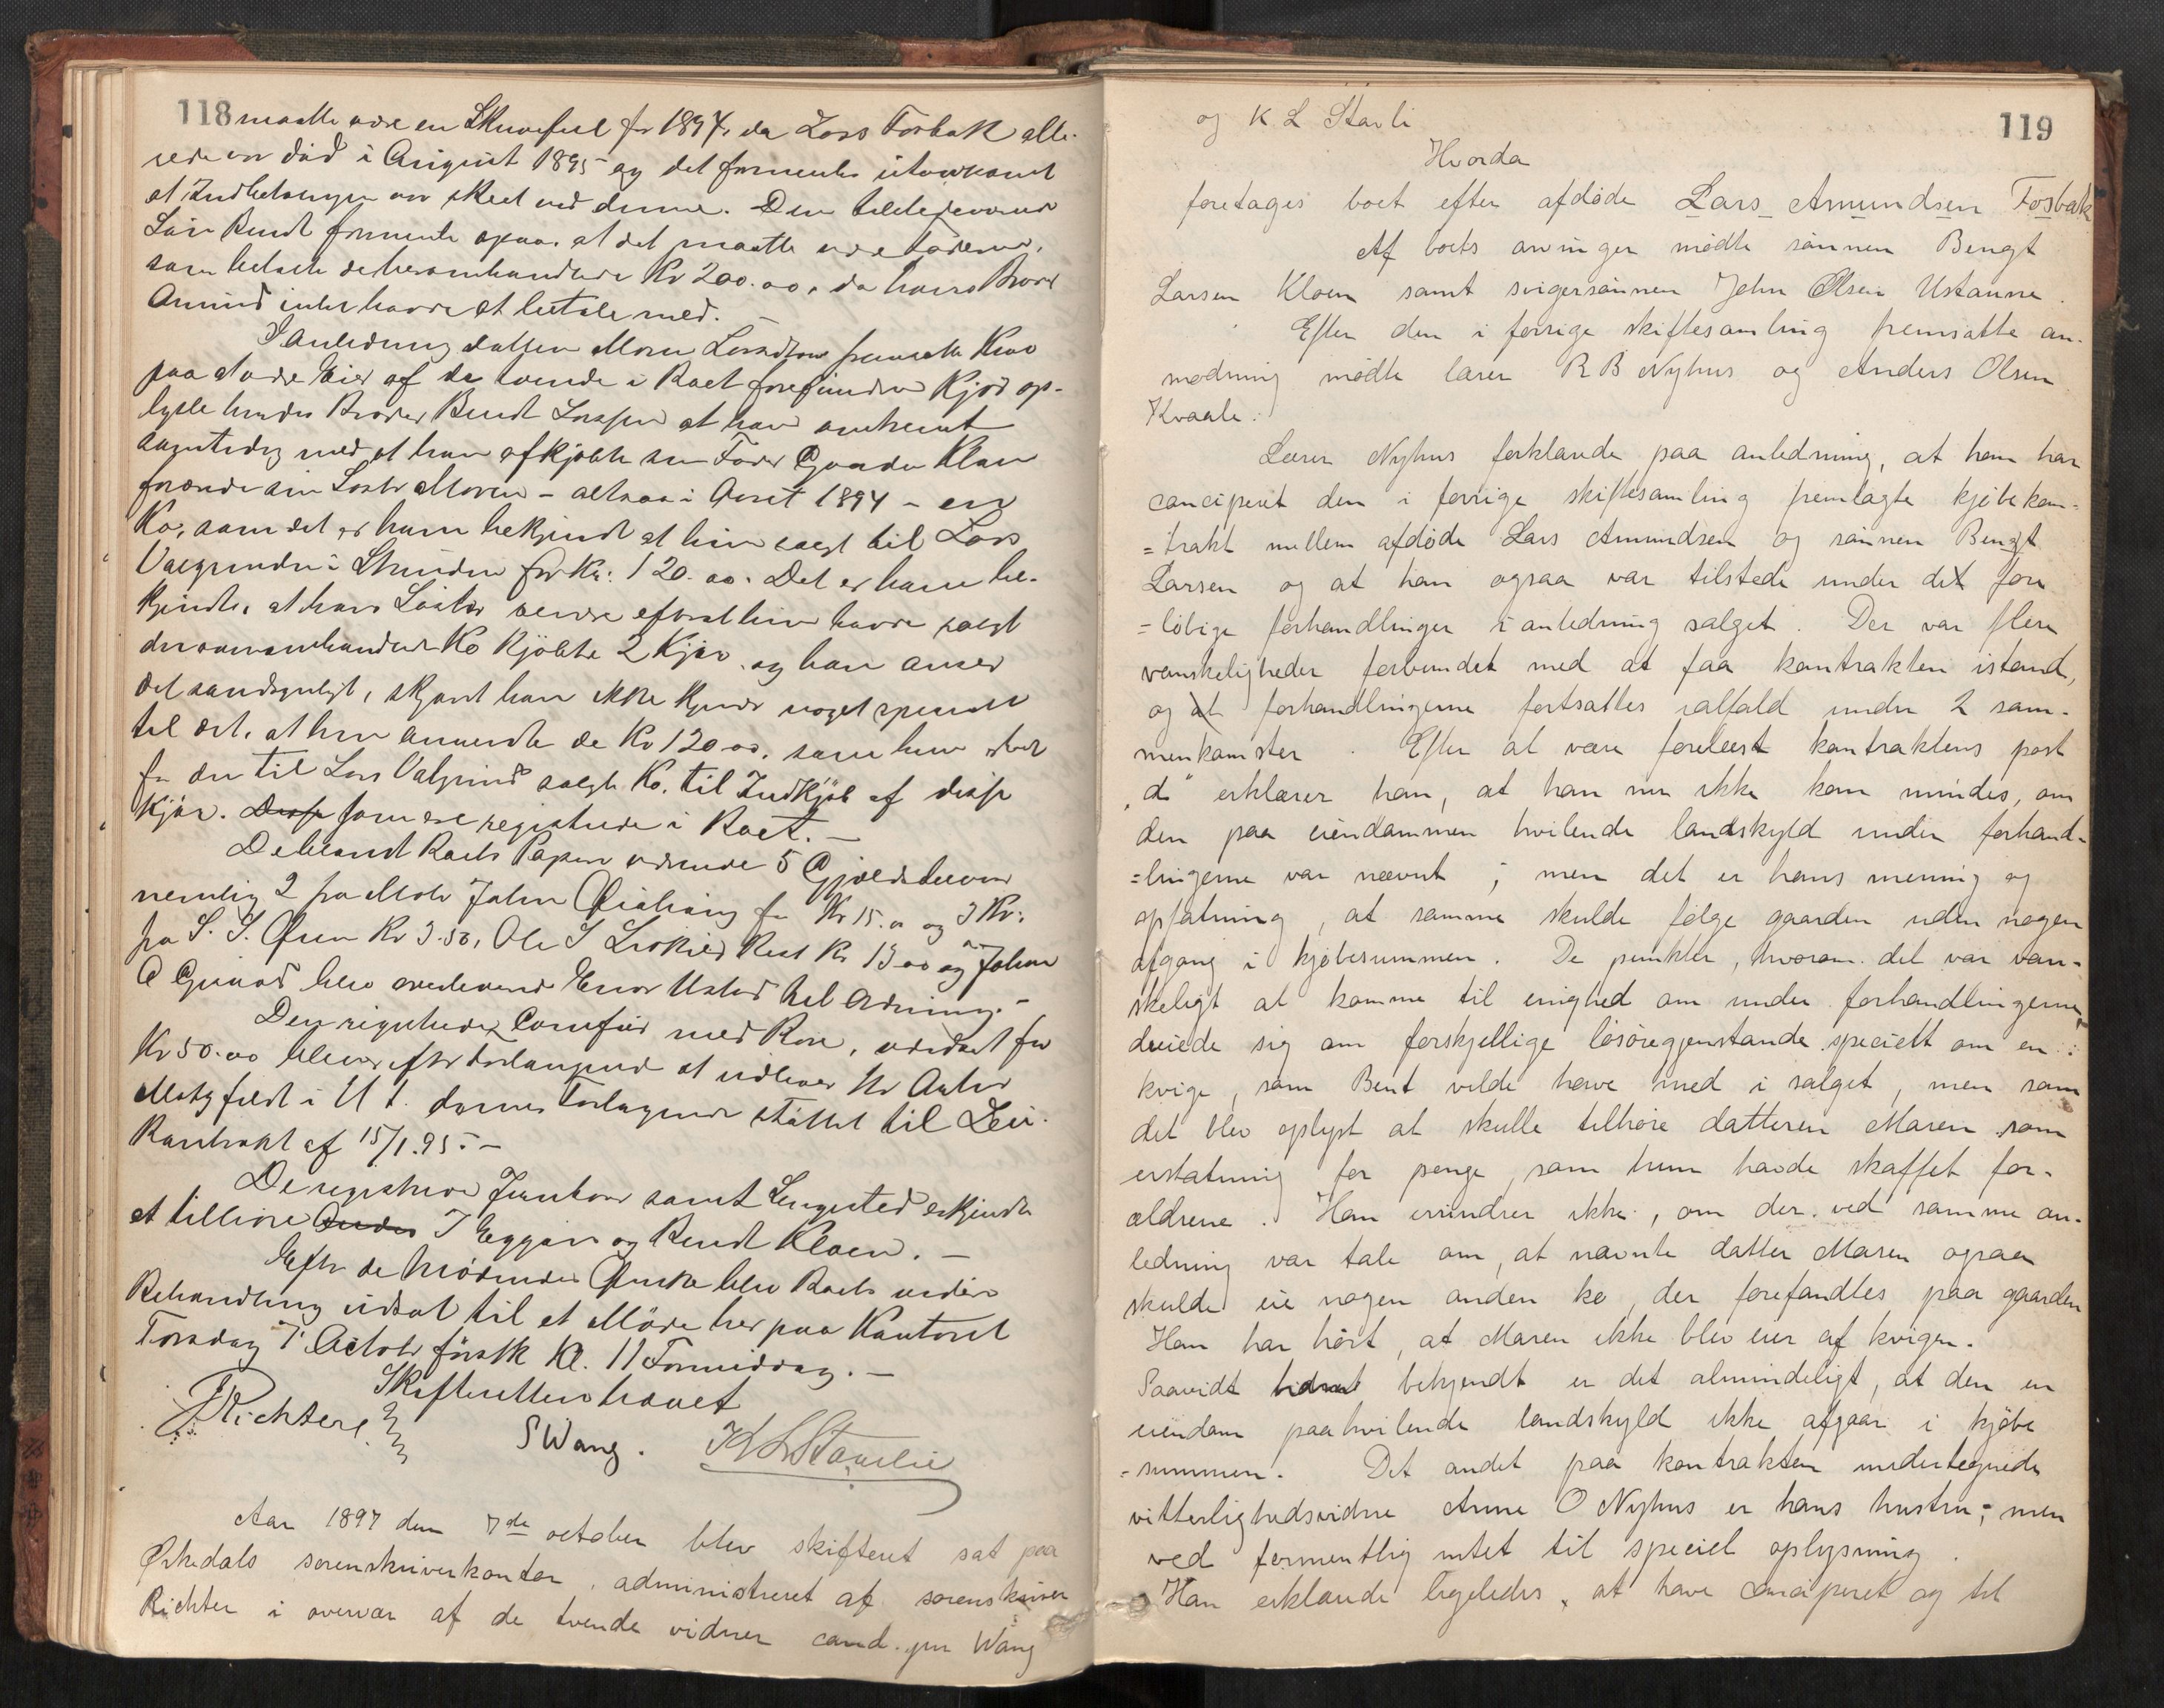 118 maatte være en Skrivefeil for 1894, da Lars Fosbak alle-
rede var död i August 1895 og det formentes utvivlsomt
at Indbetalingen var skeet ved denne. Den tilstedeværende
Sön Bendt formente ogsaa, at det maatte være Faderen,
som betalte de heromhandlede Kr 200.00, da hans Broder
Amund intet havde at betale med. —
I Anledning datteren Maren Larsdtrs fremsatte Krav
paa at være Eier af de tvende i Boet forefundne Kjör op-
lyste hendes Broder Bendt Larssen at han omtrent
samtidig med at han afkjöbte sin Fader Gaarden Kloen
forærede sin Söster Maren – altsaa i Aaret 1894 – en
Ko, som det er ham bekjendt at hun solgte til Lars
Valgrinden i Skunden for Kr. 120.00. Det er ham be-
kjendt, at hans Söster senere efterat hun havde solgt
denne omhandlede Ko kjöbte 2 Kjör og han anser
det sandsynligt, skjönt han ikke kjender noget specielt
til det, at hun anvendte de Kr 120.00, som hun fik
for den til Lars Valgrind solgte Ko, til Indkjöb af disse
Kjör. Disse som ere registrerede i Boet. —
De blandt Boets Papirer værende 5 Gjældsbeviser
nemlig 2 fra John for Kr 15.00 og 3 Kr.
fra S. S. Kr 3.50, Ole S Rest Kr 13.00 og Johan
A blev overleveret Enor Ustad til Ordning. —
Den registrerede Comfur med Rör, vurderet for
Kr 50.00 bliver efter Forlangende at udlevere Hr Anton
Motzfeldt i Henhold til dennes Forlangende støttet til Leie-
Kontrakt af 15/1.95. —
De registrerede samt Sengested erkjendtes
at tilhøre Anders I Eggen og Bendt Kloen. —
Efter de Mödendes Önske blev Boets videre
Behandling udsat til et Möde her paa Kontoret
Torsdag 7 October förstk Kl. 11 Formiddag. —
Skifteretten hævet
Richter. SWang. K L Stavlie
Aar 1897 den 7de october blev skifteret sat paa
Ørkedals sorenskriverkontor, administreret af sorenskriver
Richter i overvær af de tvende vidner cand. jur Wang
119
og K L Stavli
Hvorda
foretages boet efter afdøde Lars Amundsen Fosbak
Af boets arvinger mødte sønnen Bengt
Larsen Kloen samt svigersønnen John Olsen Ustanne.
Efter den i forrige skiftesamling fremsatte an-
modning mødte lærer R B Nyhus og Anders Olsen
Kvaale.
Lærer Nyhus forklarede paa anledning, at han har
conciperet den i forrige skiftesamling fremlagte kjøbekon-
=trakt mellem afdøde Lars Amundsen og sønnen Bengt
Larsen og at han ogsaa var tilstede under det fore
=løbige forhandlinger i anledning salget. Der var flere
vanskeligheder forbundet med at faa kontrakten istand,
og at forhandlingerne fortsattes ialfald under 2 sam-
menkomster. Efter at være forelæst kontraktens post
„d" erklærer han, at han nu ikke kan mindes, om
den paa eiendommen hvilende landskyld under forhand-
=lingerne var nævnt; men det er hans mening og
opfatning, at samme skulde følge gaarden uden nogen
afgang i kjøbesummen. De punkter, hvorom det var van-
skeligt at komme til enighed om under forhandlingerne,
dreiede sig om forskjellige løsøregjenstande specielt om en
kvige, som Bent vilde have med i salget, men som
det blev oplyst at skulle tilhøre datteren Maren som
erstatning for penge, som hun havde skaffet for-
ældrene. Han erindrer ikke, om der ved samme an-
ledning var tale om, at nævnte datter Maren ogsaa
skulde eie nogen anden ko, der forefandtes paa gaarden
Han har hørt, at Maren ikke blev eier af kvigen.
Saavidt bekjendt er det almindeligt, at den en
eiendom paahvilende landskyld ikke afgaar i kjøbe
=summen. Det andet paa kontrakten undertegnede
vitterlighedsvidne Anne O Nyhus er hans hustru; men
ved formentlig intet til speciel oplysning.
Han erklærede ligeledes, at have conciperet og til